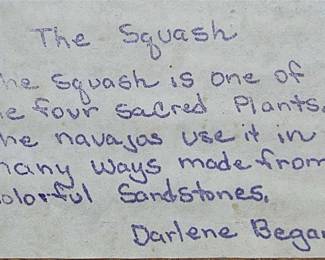 The Squash
he Squash is one of
e four Sacred Plants.
he navajos use it in
many ways made from
olorful Sandstones.
Darlene Begay